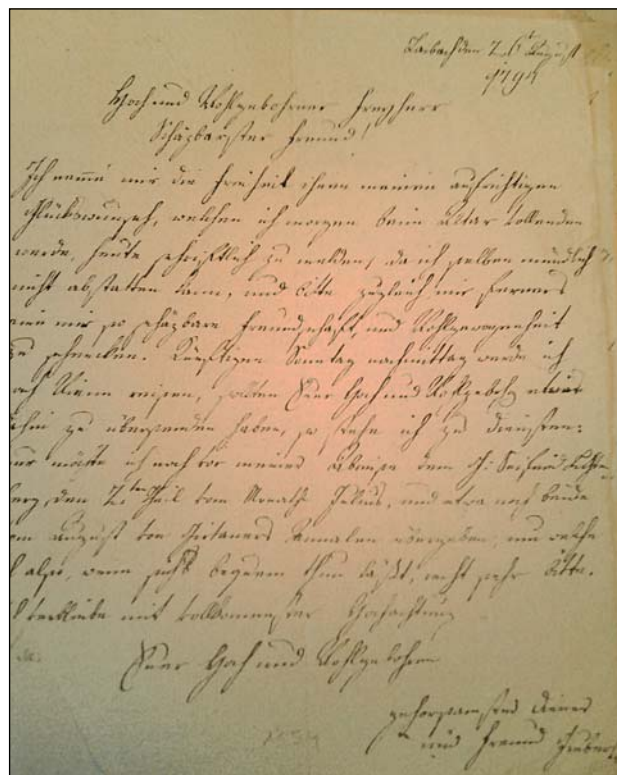 Laibach den 26t August
1794
Hoch und Wohlgebohrner Freyherr
Schäzbarster Freund!
Ich nemme mir die Freiheit ihnen meinen aufrichtigen
Glückswunsch, welchen ich morgen beim Altar vollenden
werde, heute schriftlich zu melden, da ich selben mündlich
nicht abstatten kann, und bitte zugleich mir ferners
mir so schäzbare Freundschaft, und Wohlgewogenheit
zu schencken. Künftigen Sonntag nachmittag werde ich
nach Wienn reisen, sollten Euer Hoch und Wohlgebohrn etwas
dahin zu übersenden haben, so stehe ich zu diensten:
nur möchte ich noch vor meiner Abreise dem H: Seifried
den 2ten Theil vom Monathe Julius, und etwa noch beide
vom August von Girtaners Annalen übergeben, um welche
also, wenn sichs bequem thun läßt, recht sehr bitte.
verbleibe mit vollkommenster Hochachtung
Euer Hoch und Wohlgebohrn
gehorsamster Diener
und Freund